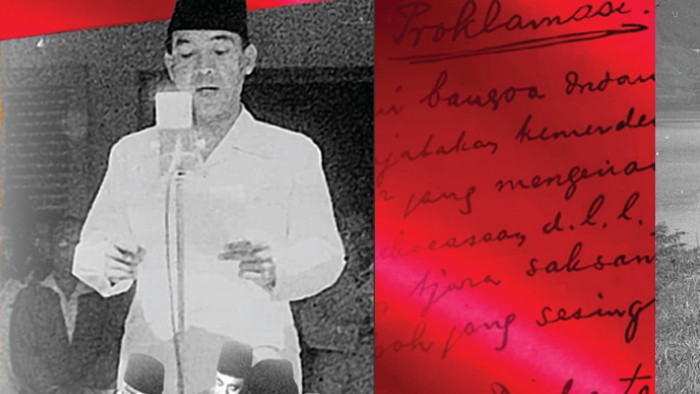 Proklamasi.
i bangsa Indon
jatakan kemerde
jang mengenai
ekoeasaan, d.l.l.
tjara saksam
oh jang sesing